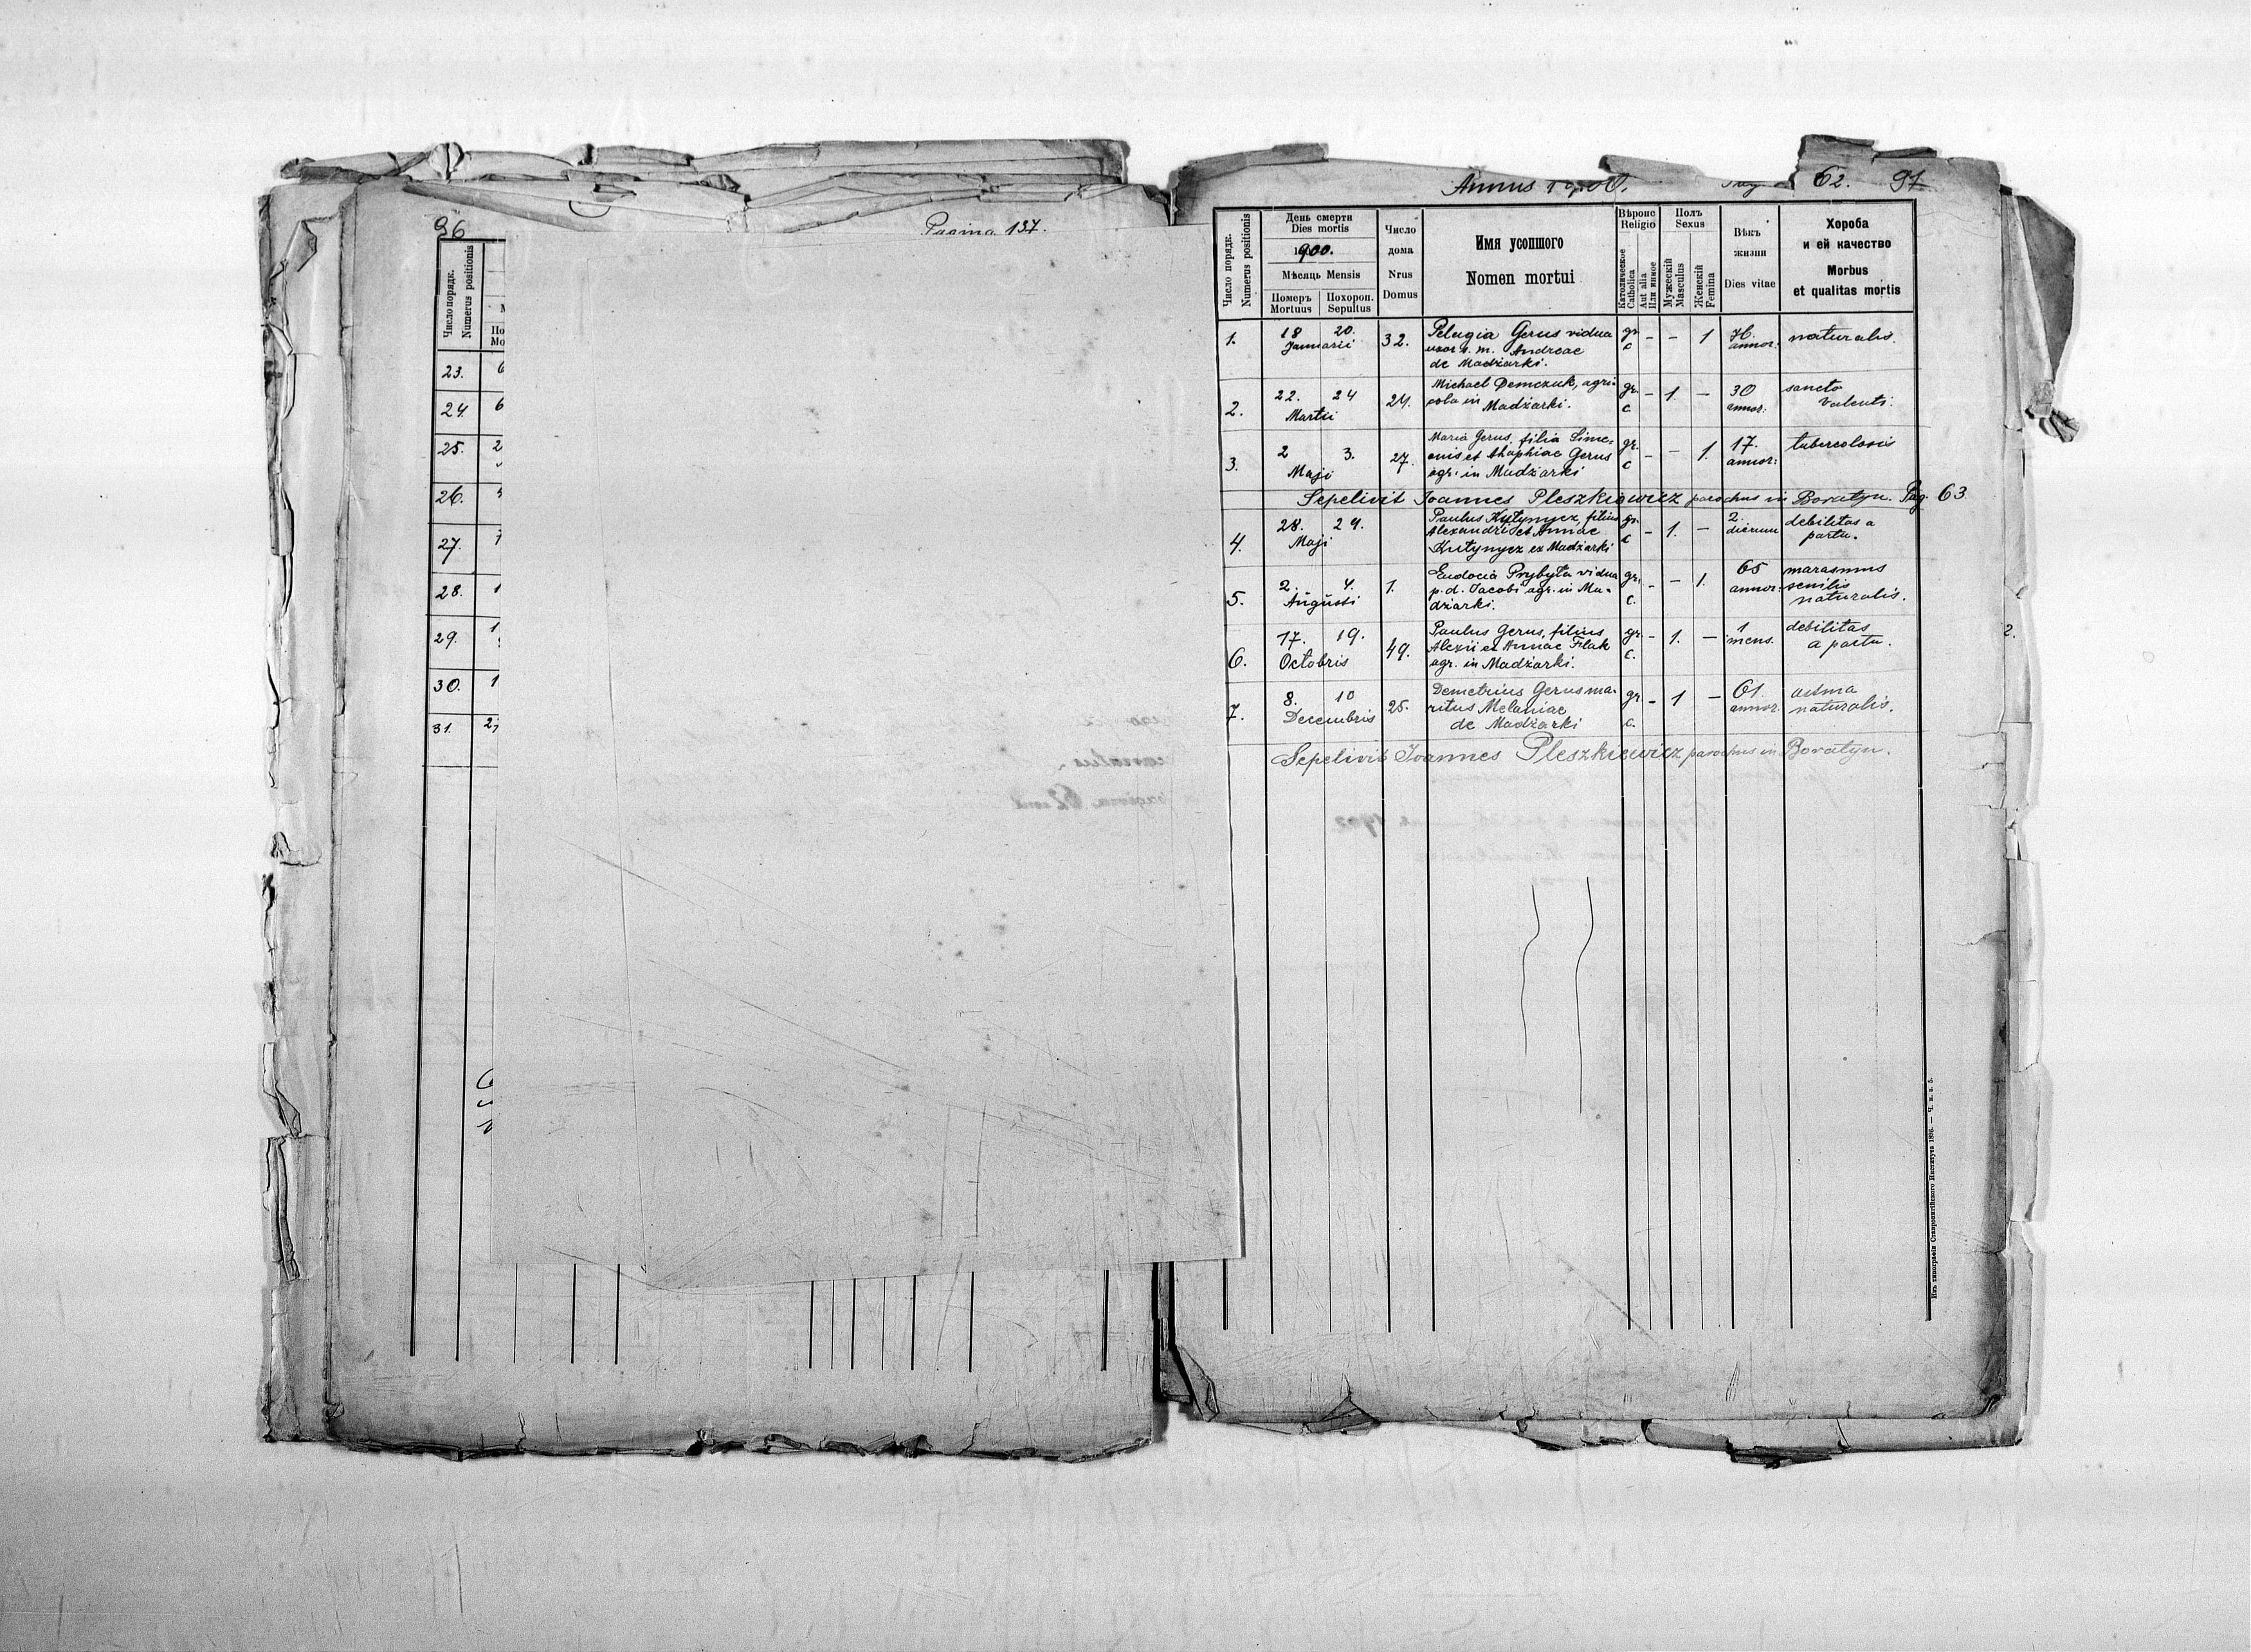 96
Pagina 137.
Число порядк.
Numerus positionis
23.
24.
25.
26.
27.
28.
29.
30.
31.
Annus 1900.
62. 97
Число порядк.
Numerus positionis
День смерти
Dies mortis
1900.
Мѣсяць Mensis
Померъ Похорон.
Mortuus Sepultus
Число
дома
Nrus
Domus
Имя усопшого
Nomen mortui
Вѣроис
Religio
Католическое
Catholica
Aut alia
Или инное
Полъ
Sexus
Мужескій
Masculus
Женскій
Femina
Вѣкъ
жизни
Dies vitae
Хороба
и ей качество
Morbus
et qualitas mortis
1. 18 20. Januarii 32. Pelagia Gerus vidua
uxor p. m. Andreae
de Madżarki.
gr. c - - 1 annor. naturalis.
2. 22. 24 Martii 24. Michael Demczuk, agri-
cola in Madżarki.
gr. c. - 1. - 30 annor: sancto
Valenti.
3. 2 3. Maji 27. Maria Gerus, filia Sime-
onis et Ahaphiae Gerus
agr. in Madżarki
gr. c - - 1. 17. annor: tubercolosis
Sepelivit Joannes Pleszkiewicz parochus in Boratyn. Pag. 63
4. 28. 29. Maji Paulus Kutynycz, filius
Alexandri et Annae
Kutynycz ex Madżarki
gr. c - 1. - 2. dierum debilitas a
partu.
5. 2. 4. Augusti 1. Eudocia Prybyła vidua
p. d. Jacobi agr. in Ma-
dżarki.
gr. c. - - 1. 65 annor: marasmus
senilis
naturalis.
6. 17. 19. Octobris 49. Paulus Gerus, filius
Alexii et Annae Filak
agr. in Madżarki.
gr. c. - 1. - 1 mens. debilitas
a partu.
7. 8. 10 Decembris 25. Demetrius Gerus ma-
ritus Melaniae
de Madżarki
gr. c. - 1 - 61. annor. astma
naturalis.
Sepelivit Joannes Pleszkiewicz parochus in Boratyn.
Изъ типографіи Ставропигійского Института 1896. — Ч. н. в. 5.